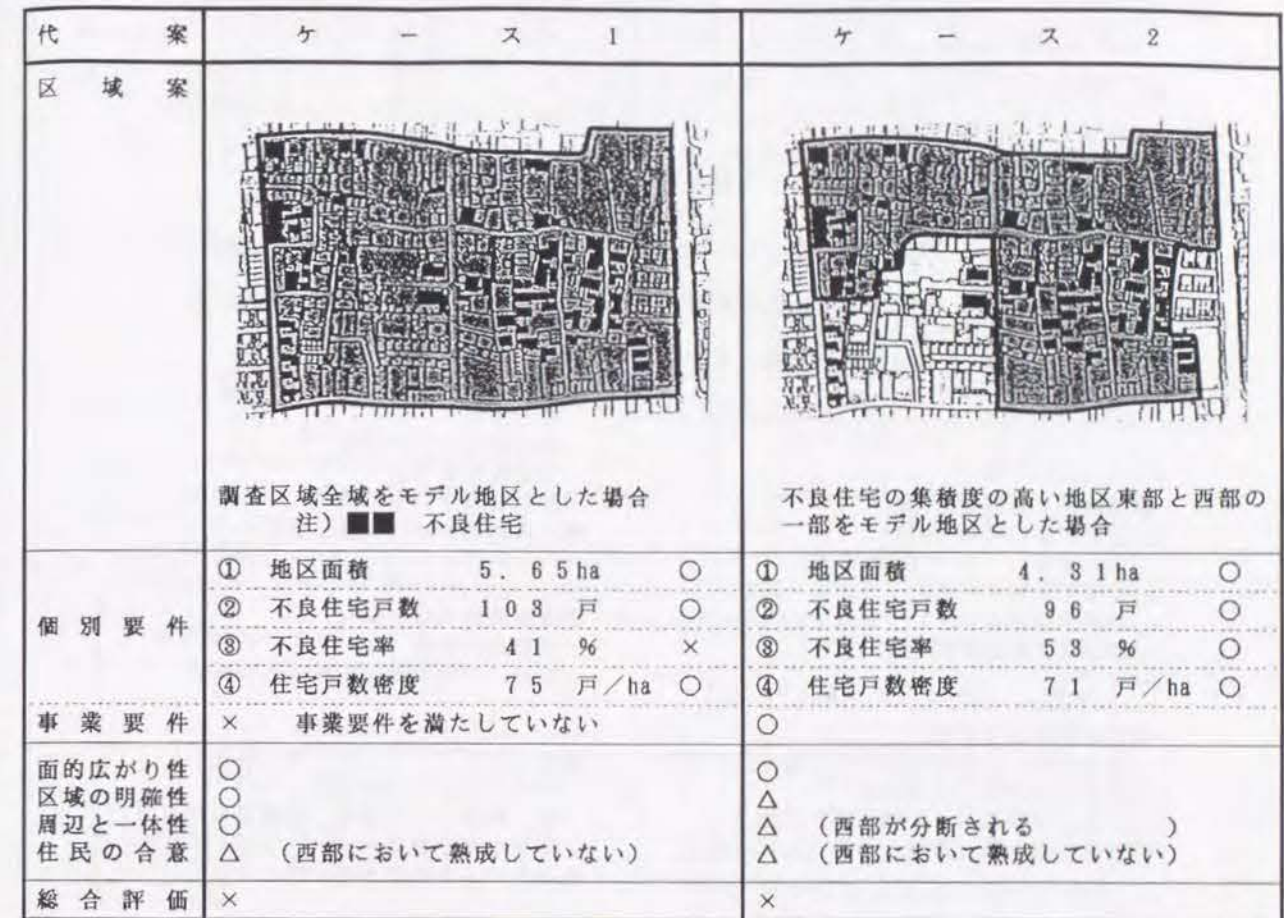 代案 ケース1 ケース2
区域案
調査区域全域をモデル地区とした場合
注）■■ 不良住宅
不良住宅の集積度の高い地区東部と西部の
一部をモデル地区とした場合
個別要件
① 地区面積 5.65ha ○ ① 地区面積 4.31ha ○
② 不良住宅戸数 103戸 ○ ② 不良住宅戸数 96戸 ○
③ 不良住宅率 41% × ③ 不良住宅率 53% ○
④ 住宅戸数密度 75戸／ha ○ ④ 住宅戸数密度 71戸／ha ○
事業要件 × 事業要件を満たしていない ○
面的広がり性 ○ ○
区域の明確性 ○ △
周辺と一体性 ○ △ （西部が分断される ）
住民の合意 △ （西部において熟成していない） △ （西部において熟成していない）
総合評価 × ×